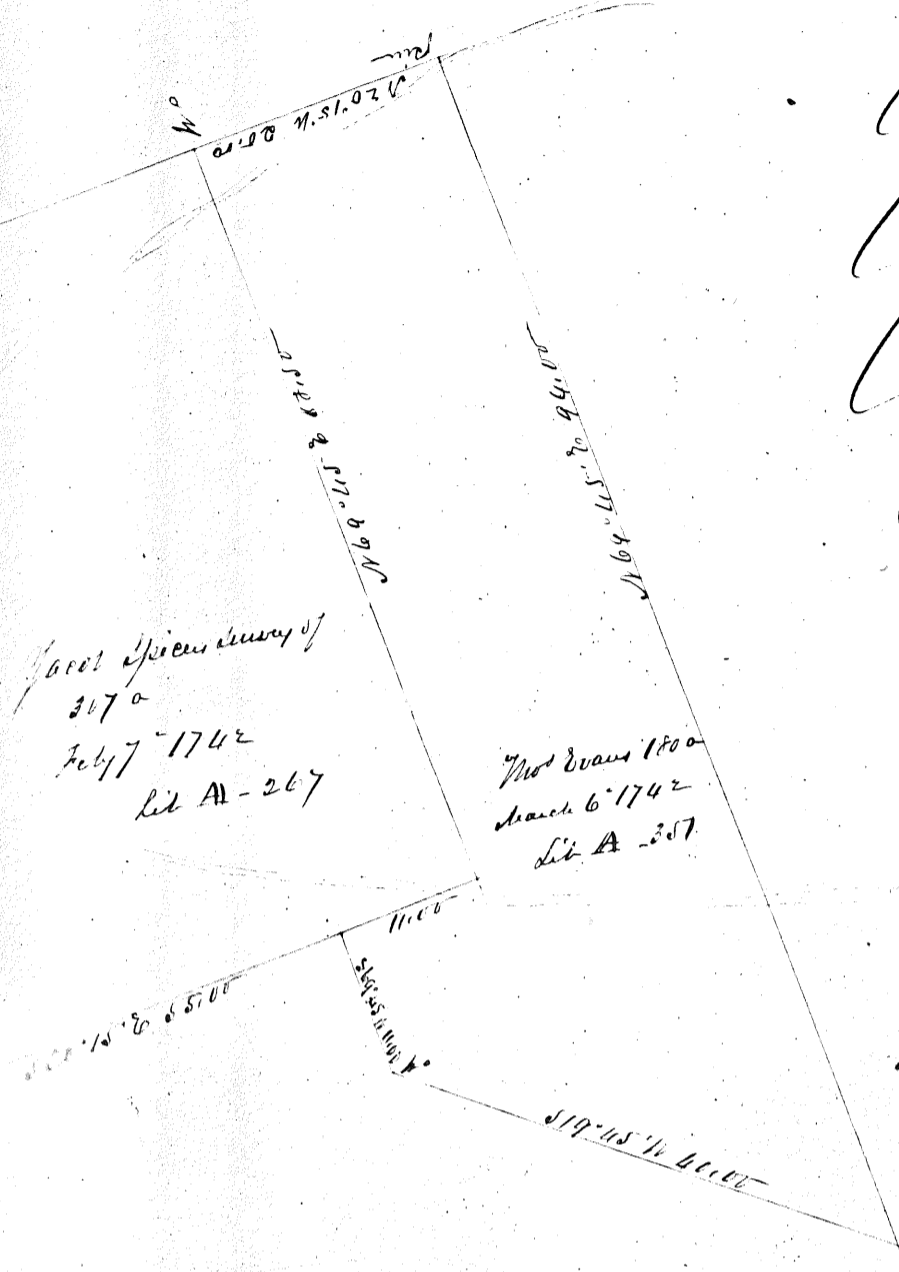 Pine
N 20°15' W 20.50
N 69°45' E 67.50
N 69°45' E 94.00
Jacob Spicer Survey of
367 a
Feby 7 - 1742
Lib AA - 267
Thos Evans 180 a
March 6 - 1742
Lib AA - 357
11.00
15' E 55.00
S 69°45' W 11.00
S 19°45' W 40.00